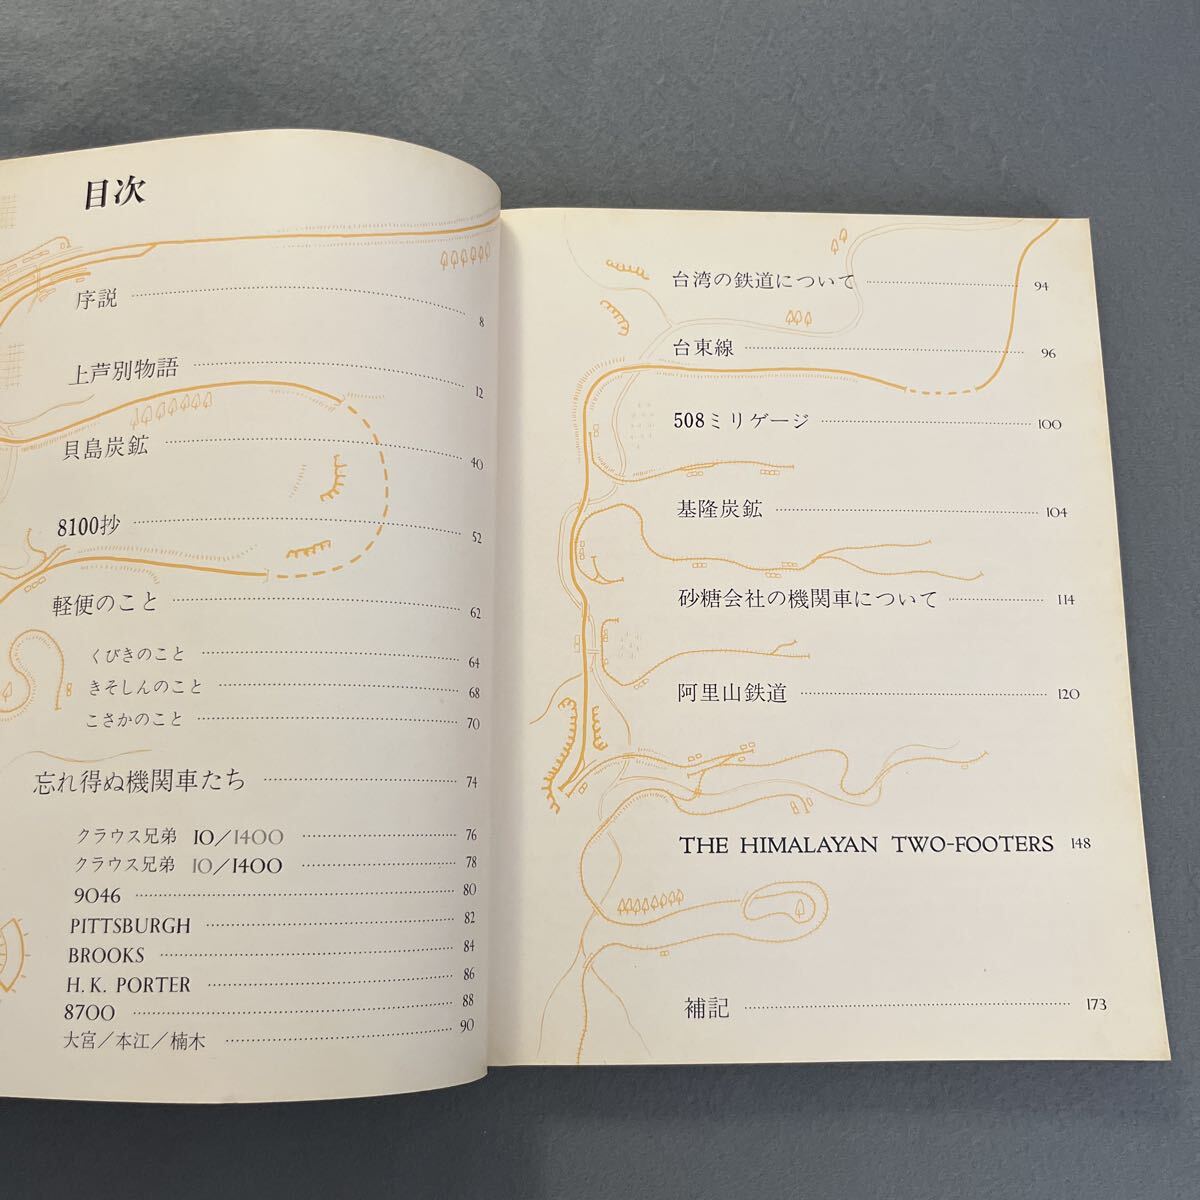 目次
序説 8
上芦別物語 12
貝島炭鉱 40
8100抄 52
軽便のこと 62
くびきのこと 64
きそしんのこと 68
こさかのこと 70
忘れ得ぬ機関車たち 74
クラウス兄弟 10/1400 76
クラウス兄弟 10/1400 78
9046 80
PITTSBURGH 82
BROOKS 84
H. K. PORTER 86
8700 88
大宮/本江/楠木 90
台湾の鉄道について 94
台東線 96
508ミリゲージ 100
基隆炭鉱 104
砂糖会社の機関車について 114
阿里山鉄道 120
THE HIMALAYAN TWO-FOOTERS 148
補記 173